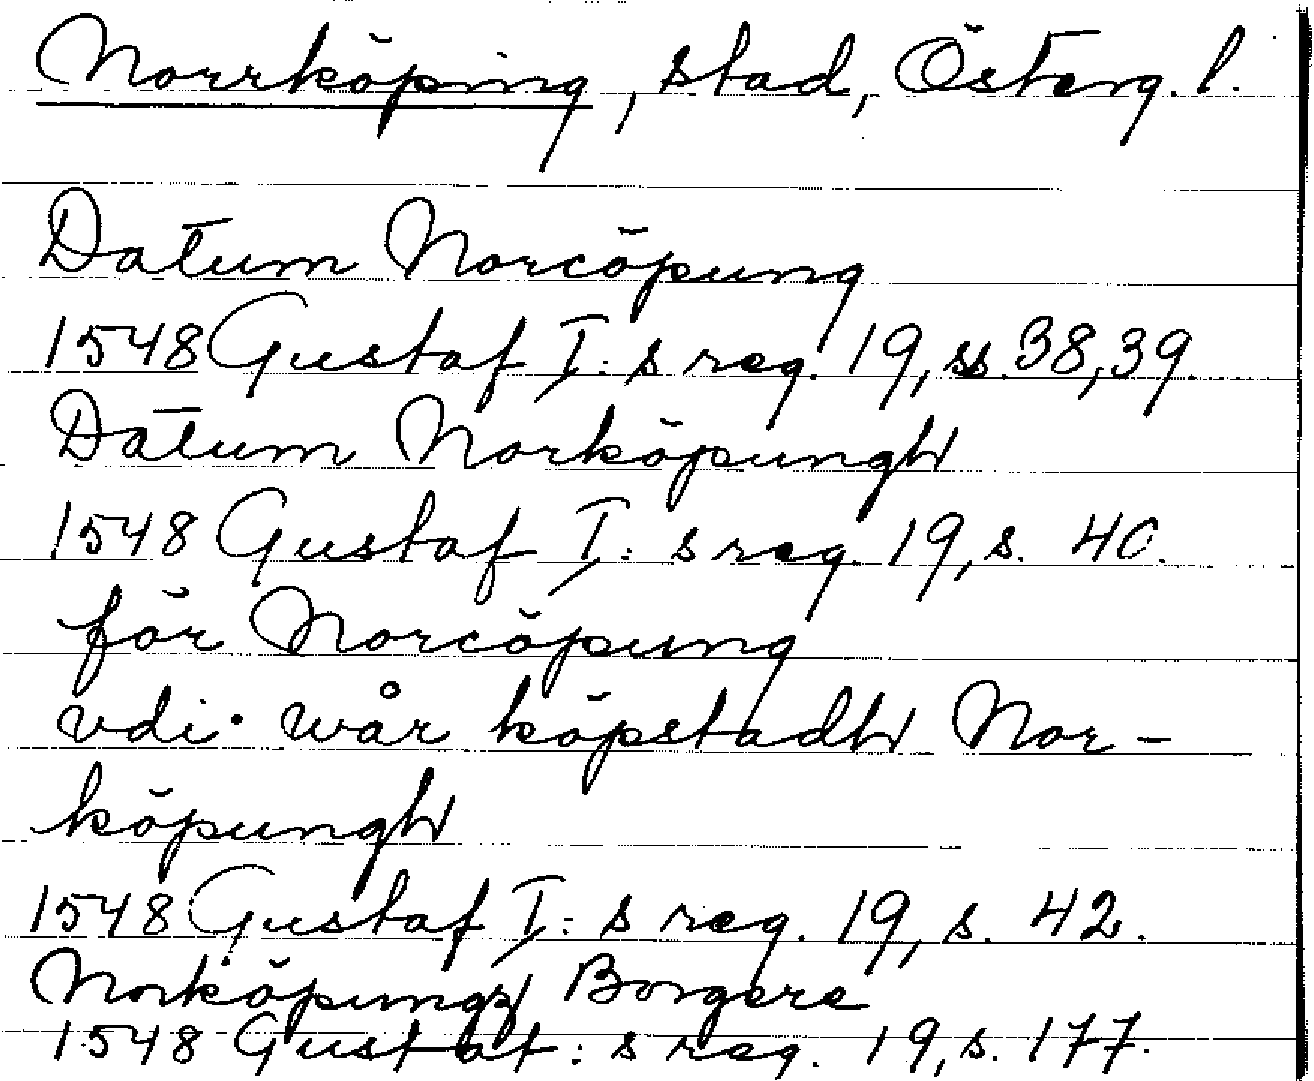 Norrköping, stad, Österg. l.
Datum Norcöpung
1548 Gustaf I:s reg. 19, ss. 38, 39.
Datum Norköpungh
1548 Gustaf I:s reg. 19, s. 40.
för Norcöpung
vdi wår köpstadh Nor-
köpungh
1548 Gustaf I:s reg. 19, s. 42.
Norköpungz Borgere
1548 Gustaf:s reg. 19, s. 177.